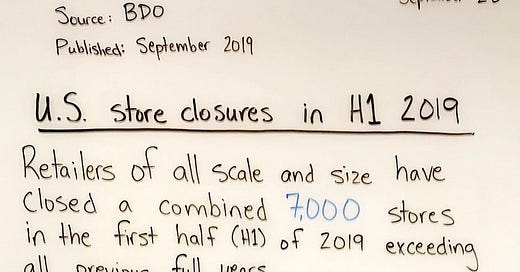 Source: BDO
Published: September 2019
U.S. store closures in H1 2019
Retailers of all scale and size have
closed a combined 7,000 stores
in the first half (H1) of 2019 exceeding
all previous full years